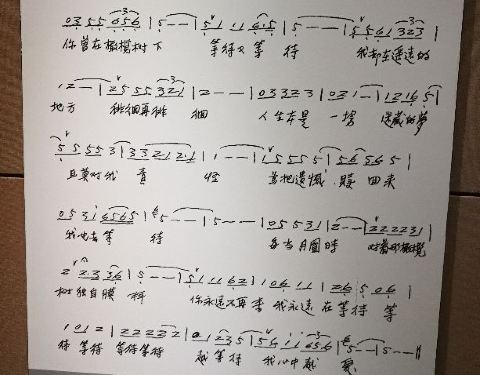 0 3 5 5 6 5 6 | 5 - - - | 5 1 1 1 6 5 | 5 - - - | 5 5 6 1 3 2 3 |
你曾在橄榄树下 等待又等待 我却在遥远的
1 2 - - | 2 5 5 5 3 2 1 | 2 - - - | 0 3 3 2 3 | 0 3 1 - | 1 2 1 6 5 |
地方 徘徊再徘徊 人生本是一场 迷藏的梦
5 5 5 5 3 | 3 3 2 1 2 1 | 1 - - - | 1 5 5 5 5 | 5 6 5 6 5 |
且莫对我责怪 为把遗憾赎回来
0 5 3 1 6 5 6 5 | 5 - - - | 5 - - - | 0 5 5 3 1 | 2 - - - | 2 2 2 2 3 1 |
我也去等待 每当月圆时 对着那橄榄
2 2 3 3 6 | 5 - - - | 5 1 1 6 2 | 1 0 6 1 1 | 2 6 5 0 6 |
树独自膜拜 你永远不再来 我永远在等待 等
1 0 1 2 | 2 2 2 3 2 | 0 1 2 3 5 | 5 6 1 1 6 5 6 | 5 - - | 5 - - - ||
待等待 等待等待 越等待 我心中越爱